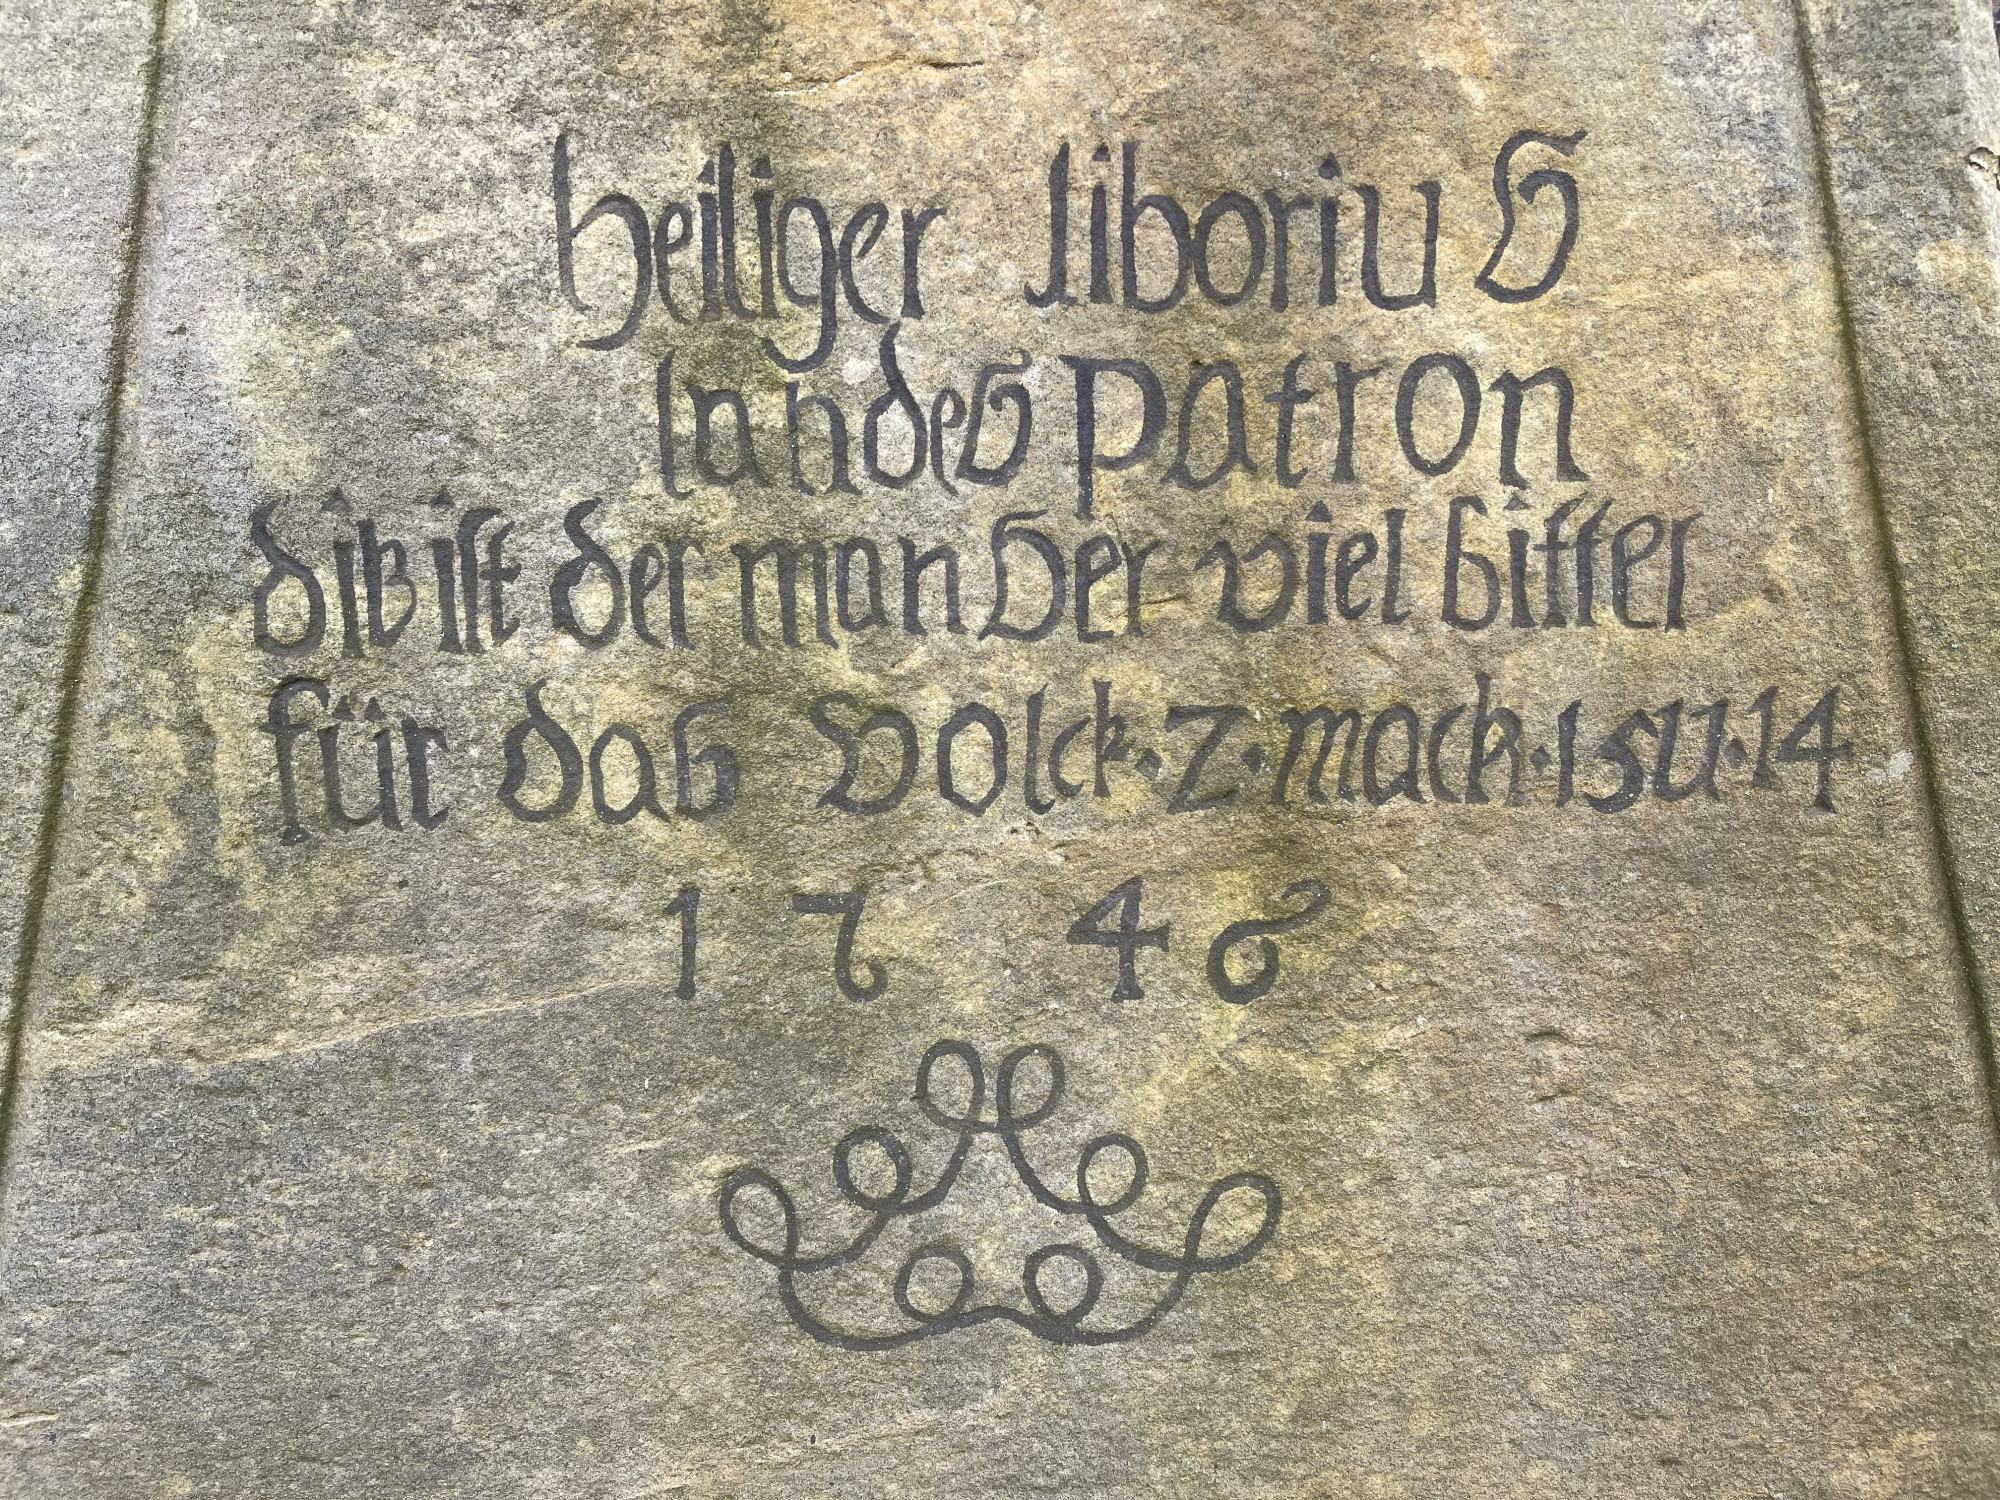 heiliger liborius
landes Patron
diß ist der man der viel bitter
für das volck · 2 · mach · 15 u · 14
1746